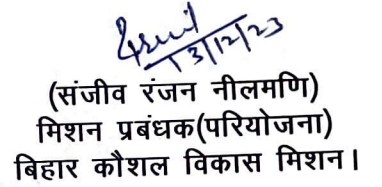 13/12/23
(संजीव रंजन नीलमणि)
मिशन प्रबंधक(परियोजना)
बिहार कौशल विकास मिशन।